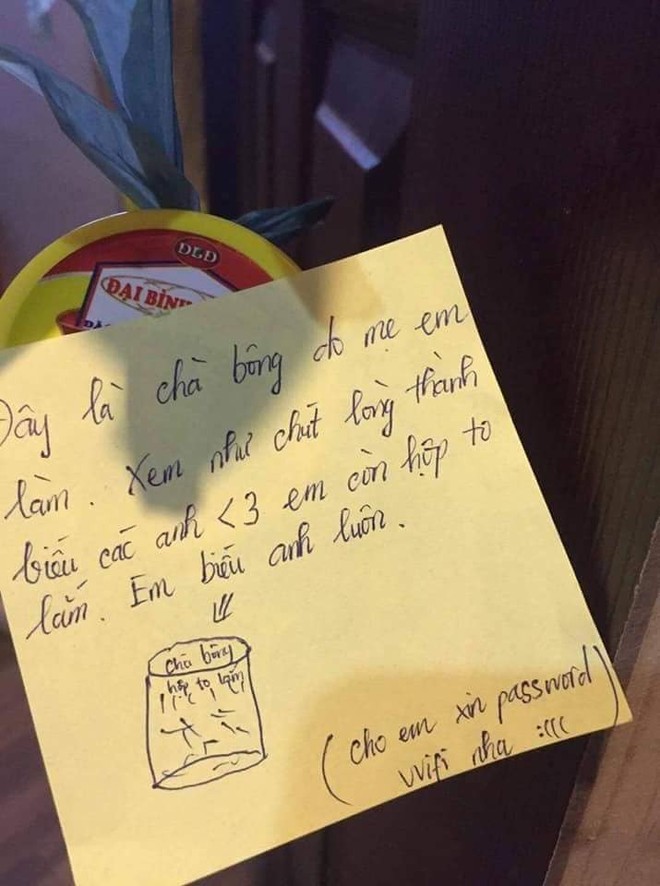 DGD
ĐẠI BÌN
Đây là chà bông do mẹ em
làm. Xem như chút lòng thành
biếu các anh <3 em còn hộp to
lắm. Em biếu anh luôn.
chà bông
hộp to lắm
(cho em xin password
wifi nha :(((
)